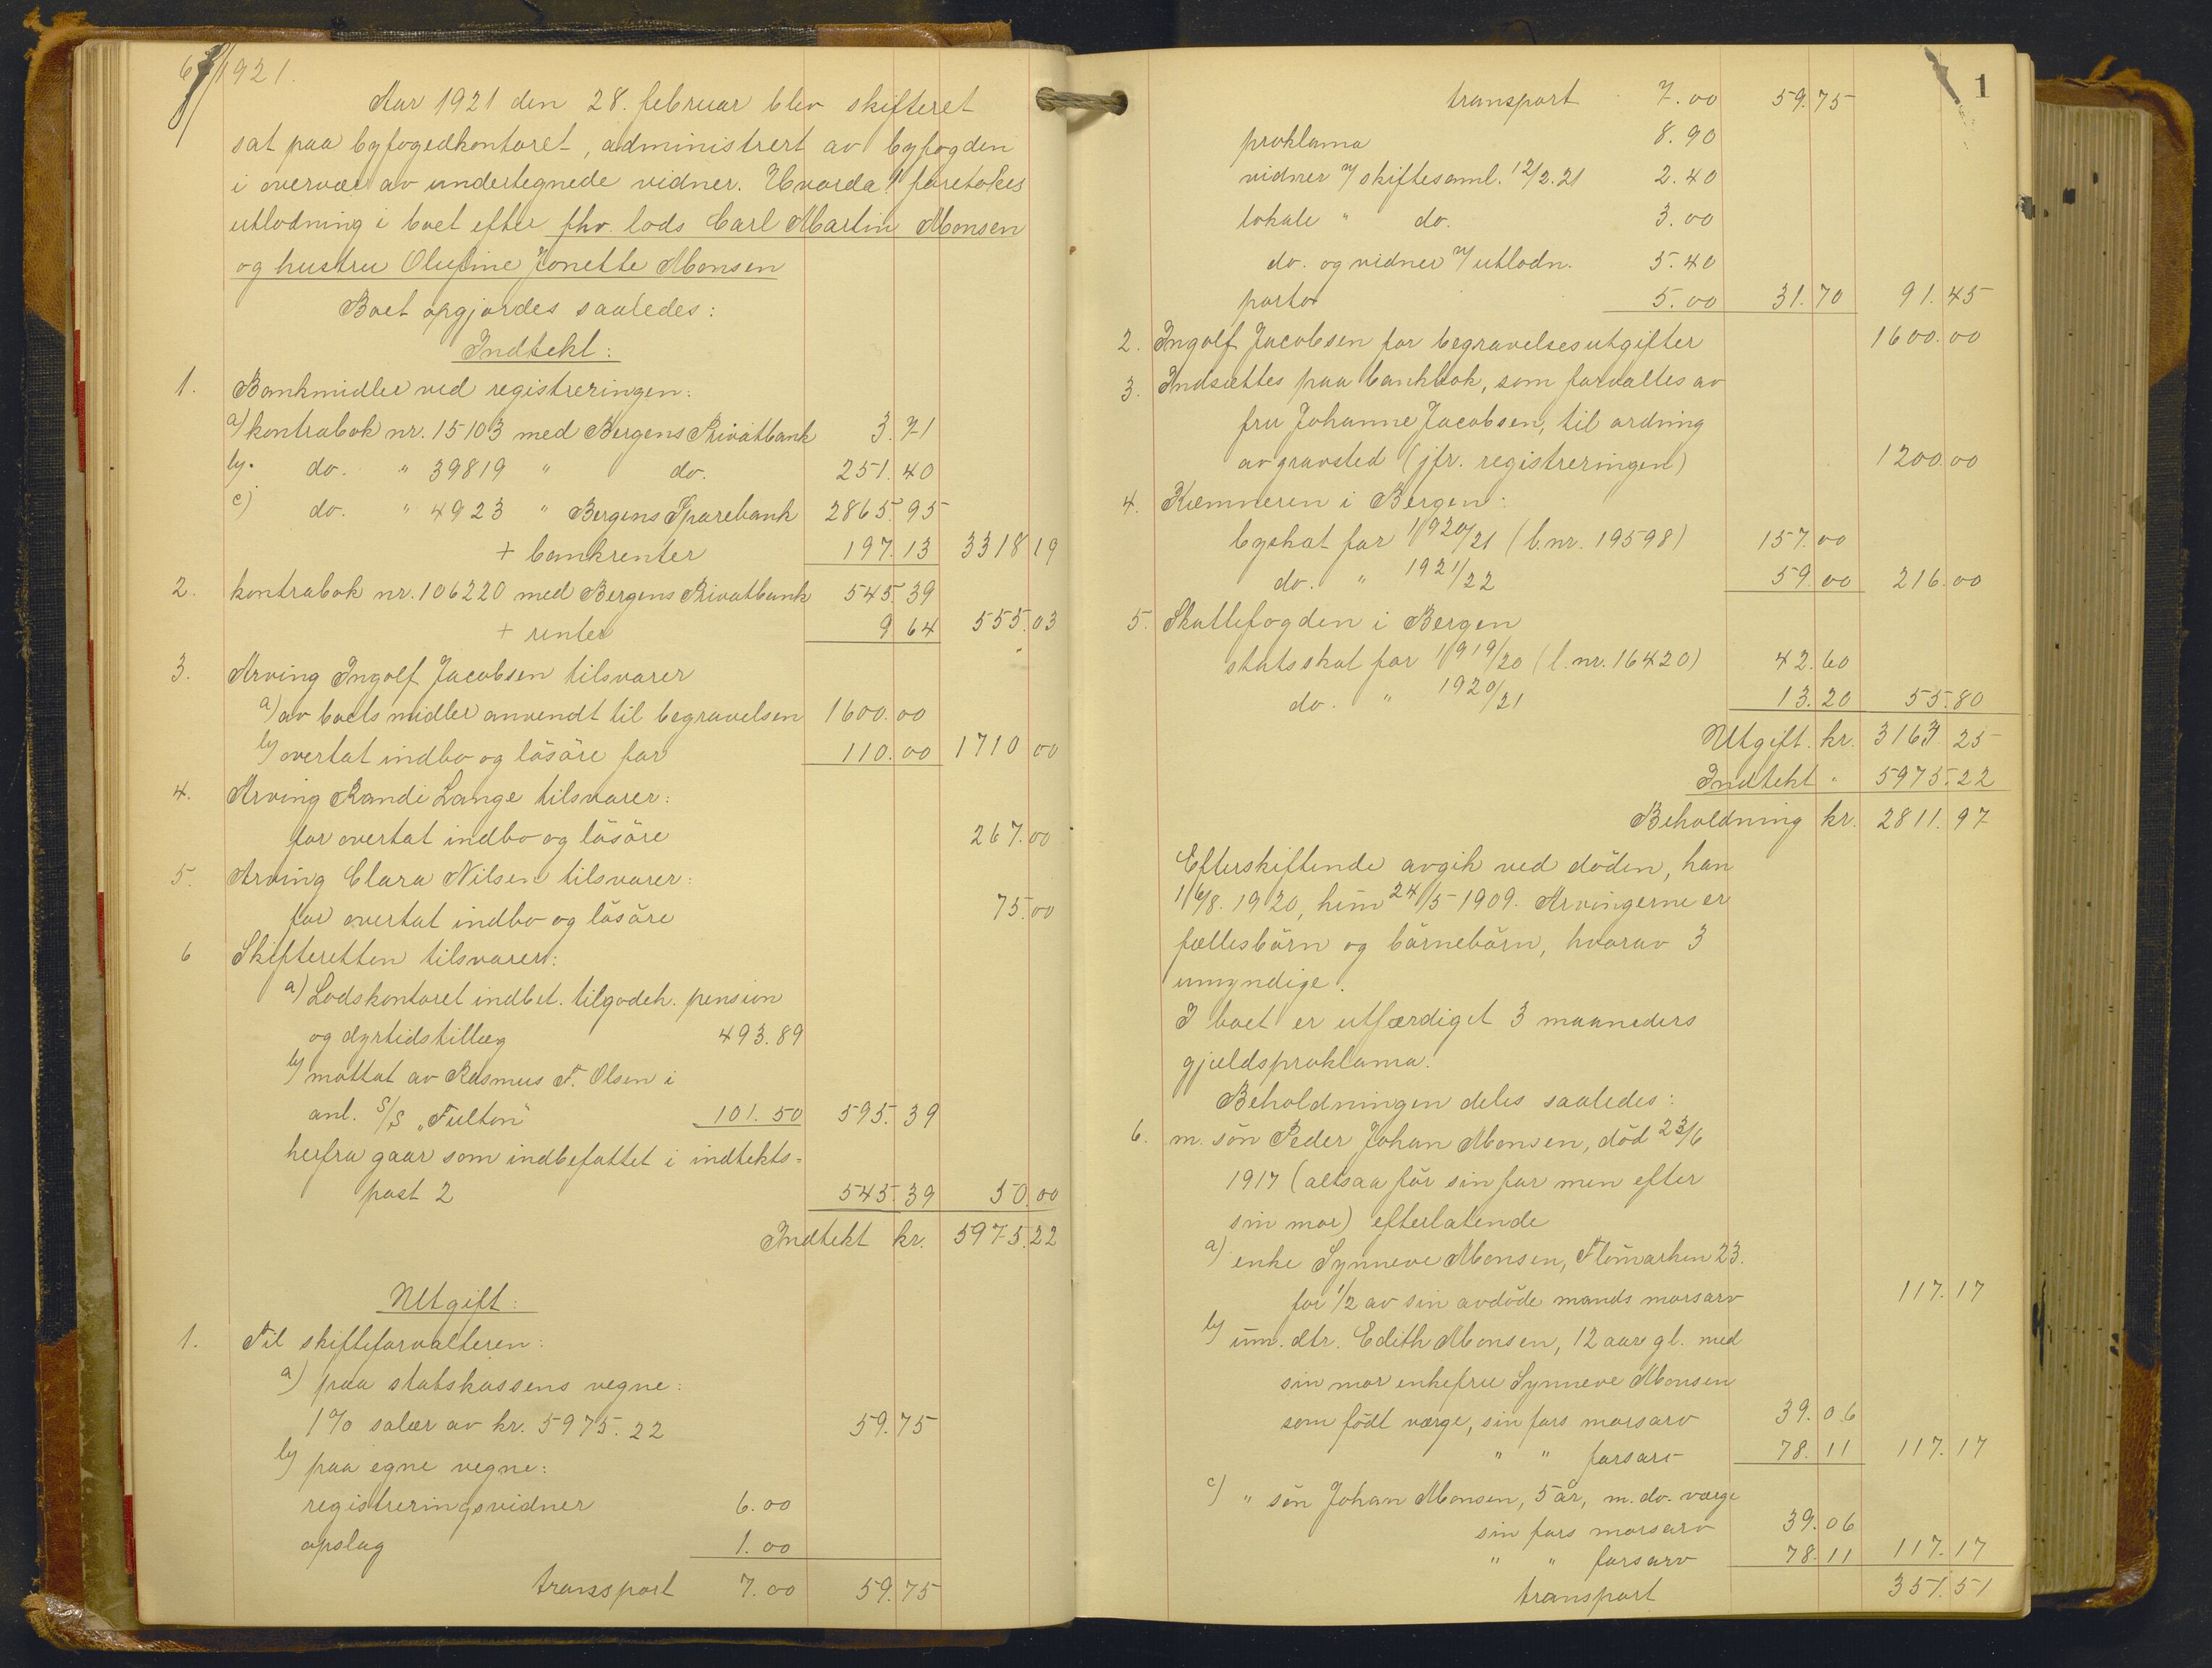 1921.
Aar 1921 den 28. februar blev skifteret
sat paa byfogedkontoret, administrert av byfogden
i overvær av undertegnede vidner. Hvorda! foretokes
utlodning i boet efter fhv. lods Carl Martin Monsen
og hustru Olufine Jonette Monsen
Boet opgjordes saaledes:
Indtekt:
1. Bankmidler ved registreringen:
a) kontrabok nr. 15103 med Bergens Privatbank 3.71
b) do. " 39819 " do. 251.40
c) do. " 4923 " Bergens Sparebank 2865.95
+ bankrenter 197.13 3318 19
2. kontrabok nr. 106220 med Bergens Privatbank 545.39
+ renter 9.64 555.03
3. Arving Ingolf Jacobsen tilsvarer
a) av boets midler anvendt til begravelsen 1600.00
b) overtat indbo og løsøre for 110.00 1710 00
4. Arving Randi Lange tilsvarer:
for overtat indbo og løsøre 267.00
5. Arving Clara Nilsen tilsvarer:
for overtat indbo og løsøre 75.00
6 Skifteretten tilsvarer:
a) Lodskontoret indbet. tilgodeh. pension
og dyrtidstillæg 493.89
b) mottat av Rasmus F. Olsen i
anl. S/S „Fulton" 101.50 595.39
herfra gaar som indbefattet i indtekts-
post 2 545.39 50.00
Indtekt kr. 5975.22
Utgift:
1. Til skifteforvalteren:
a) paa statskassens vegne:
1% salær av kr. 5975.22 59.75
b) paa egne vegne:
registreringsvidner 6.00
opslag 1.00
transport 7.00 59.75
1
transport 7.00 59.75
proklama 8.90
vidner v/ skiftesaml. 12/2.21 2.40
lokale " do. 3.00
do. og vidner v/ utlodn. 5.40
porto 5.00 31.70 91.45
2. Ingolf Jacobsen for begravelsesutgifter 1600.00
3. Indsættes paa bankbok, som forvaltes av
fru Johanne Jacobsen, til ordning
av gravsted (jfr. registreringen) 1200.00
4. Kæmneren i Bergen:
byskat for 1920/21 (b.nr. 19598) 157.00
do. " 1921/22 59.00 216.00
5. Skattefogden i Bergen
statsskat for 1919/20 (l.nr. 16420) 42.60
do. " 1920/21 13.20 55.80
Utgift. kr. 3163 25
Indtekt " 5975.22
Beholdning kr. 2811.97
Efterskiftende avgik ved døden, han
16/8. 1920, hun 24/5 1909. Arvingerne er
fællesbørn og børnebørn, hvorav 3
umyndige.
I boet er utfærdiget 3 maaneders
gjældsproklama.
Beholdningen deles saaledes:
6. m. søn Peder Johan Monsen, død 23/6
1917 (altsaa før sin far men efter
sin mor) efterlatende
a) enke Synneve Monsen, Flømarken 23.
for 1/2 av sin avdøde mands morsarv 117.17
b) um. dtr. Edith Monsen, 12 aar gl. med
sin mor enkefru Synneve Monsen
som født værge, sin fars morsarv 39.06
" " farsarv 78.11 117.17
c) " søn Johan Monsen, 5 år, m. do. værge
sin fars morsarv 39.06
" " farsarv 78.11 117.17
transport 351.51